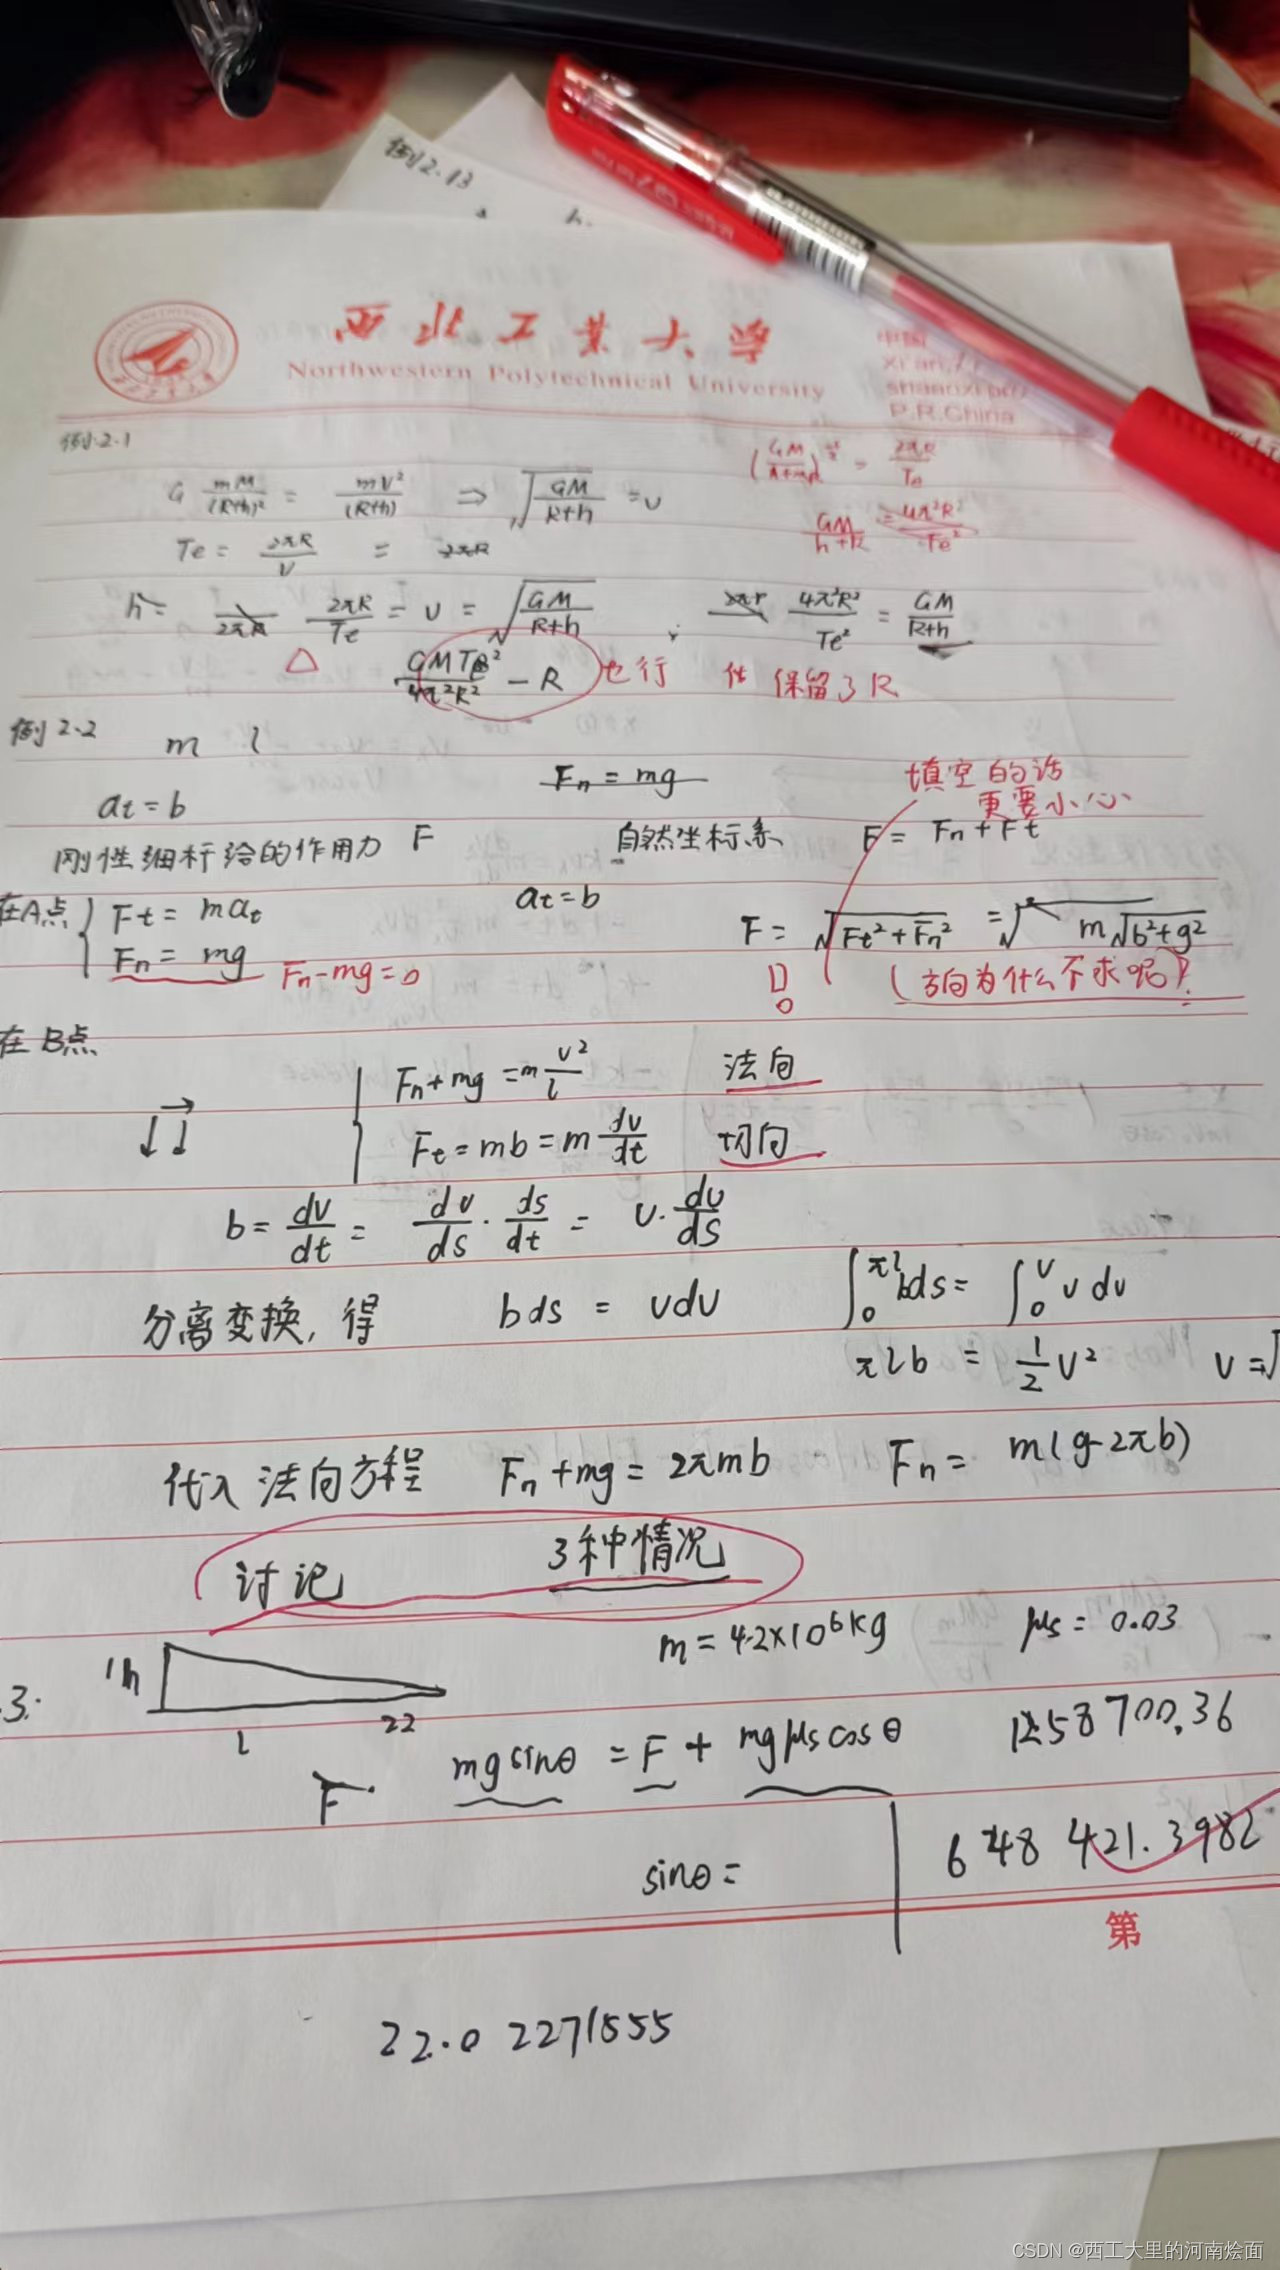 例2.13
h.
西北工业大学
Northwestern Polytechnical University
中国
Xi'an,
shaanxi
P.R.China
例2.1
G mM/(R+h)² = mV²/(R+h) ⇒ √(GM/(R+h)) = υ
Te = 2πR/V = 2πR
= 2πR/Te
GM/(h+R) = 4π²R²/Te²
h = 2πR 2πR/Te = υ = √(GM/(R+h)) ; 4π²R²/Te² = GM/(R+h)
△ GMTe²/(4π²R²) − R 也行 保留了R
例2.2 m l
Fn = mg
填空的话
更要小心
at = b
刚性细杆给的作用力 F 自然坐标系 F = Fn + Ft
at = b
在A点 { Ft = mat
Fn = mg Fn−mg=0
F = √(Ft²+Fn²) = m√(b²+g²)
(方向为什么不求呢)?
在B点
Fn+mg = m v²/l 法向
Ft = mb = m dv/dt 切向
b = dv/dt = dv/ds · ds/dt = υ· dυ/ds
分离变换, 得 bds = υdυ ∫₀^πl bds = ∫₀^v υdυ
πlb = 1/2 V² V = √
代入法向方程 Fn+mg = 2πmb Fn = m(g-2πb)
讨记 3种情况
m = 4.2×10⁶kg μs = 0.03
.3. 1h
l 22
mg sinθ = F + mgμs cosθ 1258700.36
F
sinθ = 648 421.3982
第
22.02271555
CSDN @西工大里的河南烩面